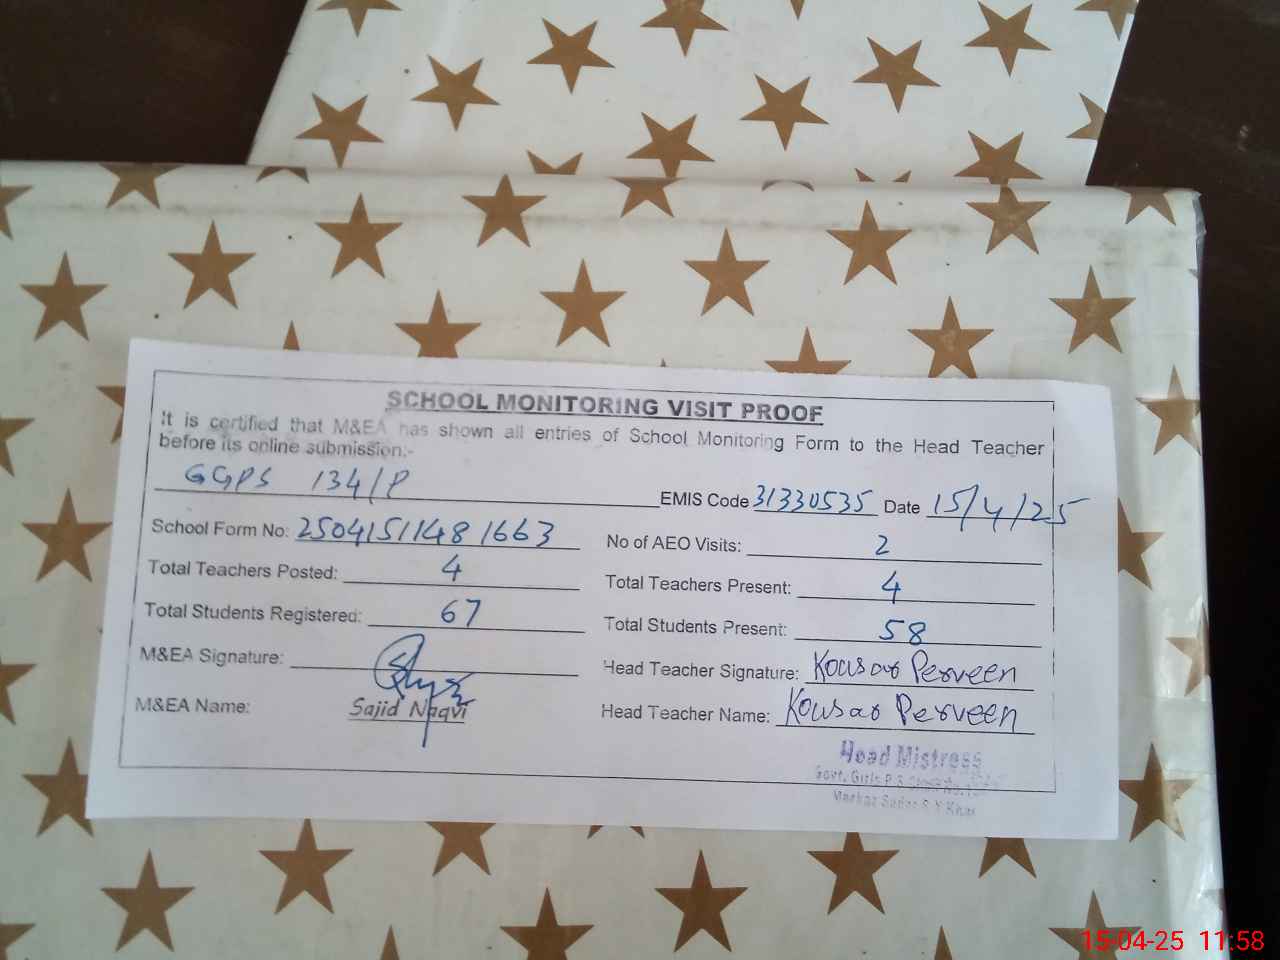 SCHOOL MONITORING VISIT PROOF
It is certified that M&EA has shown all entries of School Monitoring Form to the Head Teacher
before its online submission:-
GGPS 134/P EMIS Code 31330535 Date 15/4/25
School Form No: 2504151148 1663 No of AEO Visits: 2
Total Teachers Posted: 4 Total Teachers Present: 4
Total Students Registered: 67 Total Students Present: 58
M&EA Signature: Head Teacher Signature: Kousar Perveen
M&EA Name: Sajid Naqvi Head Teacher Name: Kousar Perveen
Head Mistress
Govt. Girls P.S
Markaz Sadar R.Y Khan
15-04-25 11:58